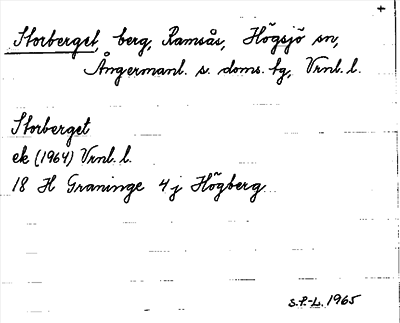 +
Storberget, berg, Ramsås, Högsjö sn,
Ångermanl. s. doms. tg, Vrnl. l.
Storberget
ek (1964) Vrnl. l.
18 H Graninge 4 j Högberg
S.P.-L. 1965